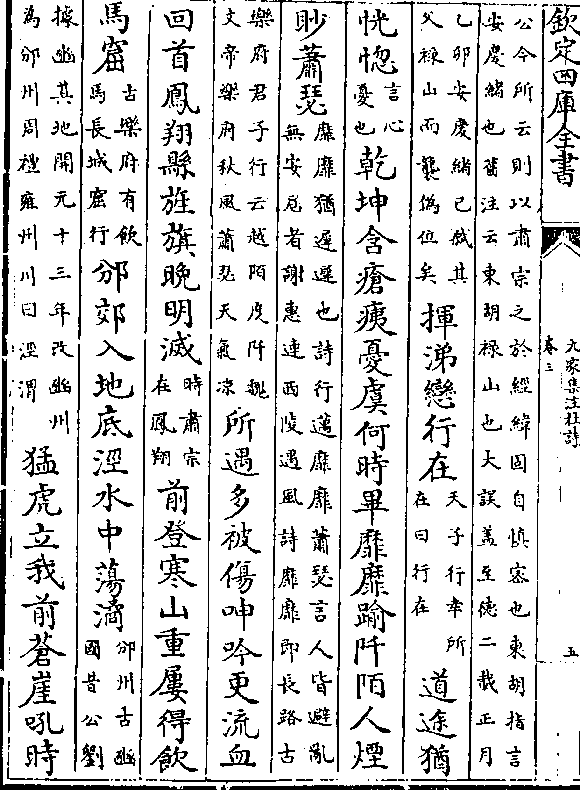 欽定四庫全書
九家集注杜詩
卷三
五
公今所云則以肅宗之於經緯固自慎密也東胡指言
安慶緒也舊注云東胡祿山也大誤蓋至徳二載正月
乙卯安慶緒已弑其
父祿山而襲偽位矣
揮涕戀行在
天子行幸所
在曰行在
道途猶
恍惚
言心
憂也
乾坤含瘡痍憂虞何時畢靡靡踰阡陌人煙
眇蕭瑟
靡靡猶遲遲也詩行邁靡靡蕭瑟言人皆避亂
無安居者謝惠連西陵遇風詩靡靡即長路古
樂府君子行云越陌度阡魏
文帝樂府秋風蕭瑟天氣凉
所遇多被傷呻吟更流血
回首鳳翔縣旌旗晚明滅
時肅宗
在鳳翔
前登寒山重屢得飲
馬窟
古樂府有飲
馬長城窟行
邠郊入地底涇水中蕩潏
邠州古豳
國昔公劉
據豳其地開元十三年改豳州
為邠州周禮雍州川曰涇渭
猛虎立我前蒼崖吼時